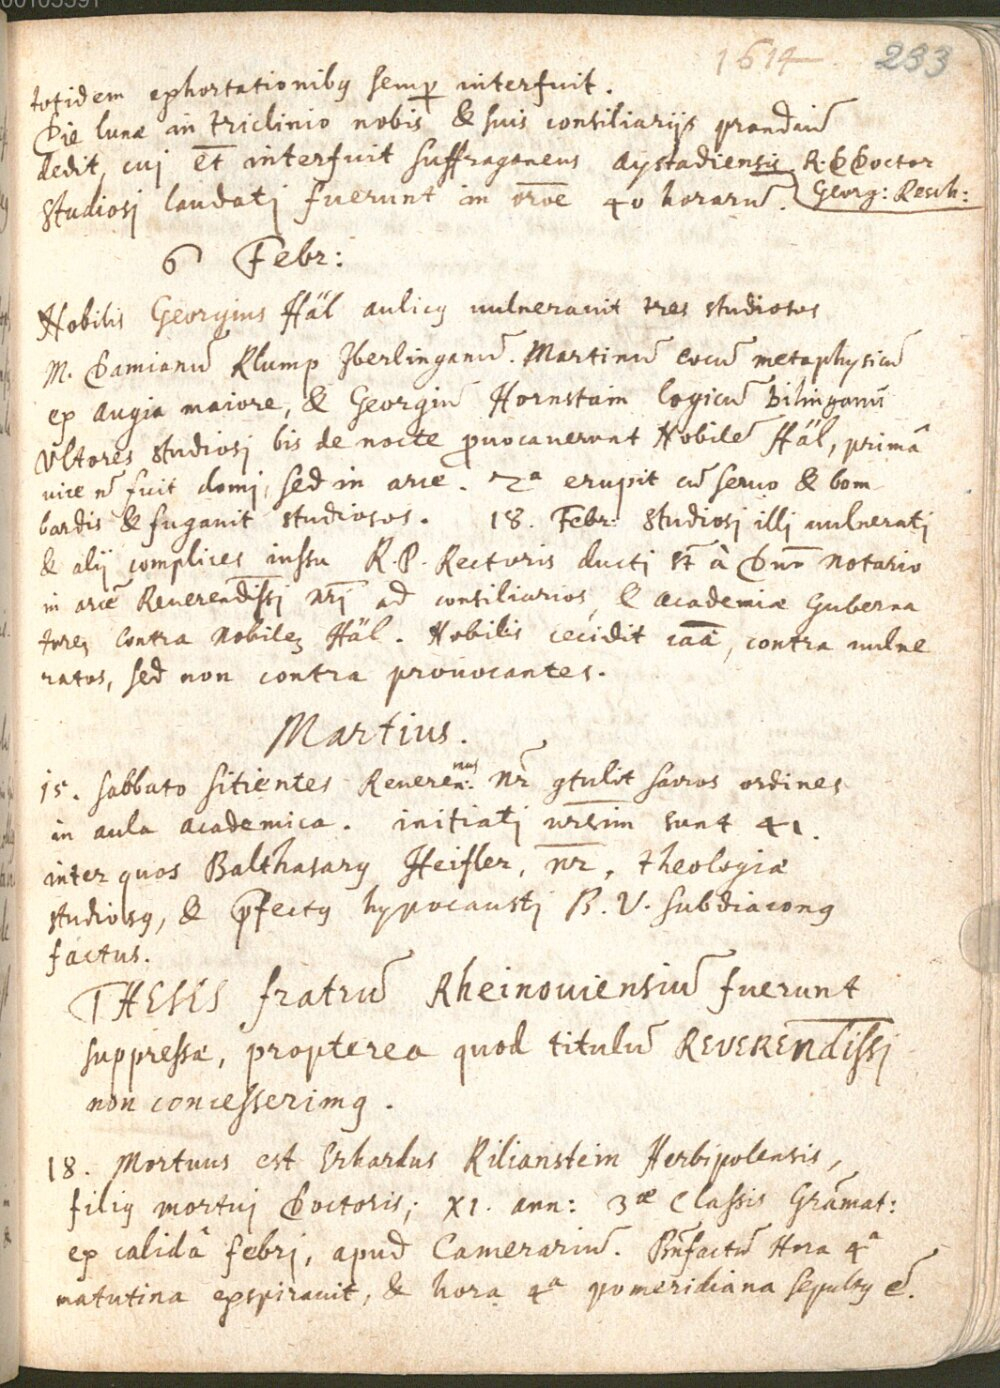 00103591
1614 233
totidem exhortationibꝰ semp̱ interfuit.
Die lunæ in triclinio nobis & suis consiliarijs prandiū
dedit, cui et̄ interfuit suffraganeus Aystadiensis R. D Doctor
Georg: Resch:
studiosi laudati fuerunt in or̄oe 40 horarū.
6 Febr:
Nobilis Georgius Häl aulicꝰ uulnerauit tres studiosos
M. Damianū Klump Iberlinganū. Martinū Cocū metaphysicū
ex Augia maiore, & Georgiū Hornstain logicū Bilinganū
Vltores studiosi bis de nocte ꝓuocauerunt Nobilē Häl, primâ
uice nō fuit domi, sed in arce. 2ª erupit cū seruo & bom-
bardis & fugauit studiosos. 18. Febr: Studiosi illi uulnerati
& alij complices iussu R. P. Rectoris ducti st̄ à Dnō Notario
in arcē Reuerendissi nr̄i ad consiliarios, & academiæ Guberna
tores contra Nobilē Häl. Nobilis cecidit cāā, contra uulne
ratos, sed non contra prouocantes.
Martius.
15. Sabbato Sitientes Reueren:mus Nr̄ ꝯtulit sacros ordines
in aula academica. initiati sunt 41.
inter quos Balthasarꝰ Heisler, nr̄, theologiæ
studiosꝰ, & p̄fectꝰ hypocausti B. V. subdiaconꝰ
factus.
THESES fratrū Rheinouiensiū fuerunt
suppressæ, propterea quod titulū REVERENdissi
non concesserimꝰ.
18. Mortuus est Erhardus Kilianstein Herbipolensis,
filiꝰ mortui Doctoris; XI. ann: 3æ Classis Grāmat:
ex calidâ febri, apud Camerariū. Hora 4ª
matutina expirauit, & hora 4ª pomeridiana sepultꝰ ē.